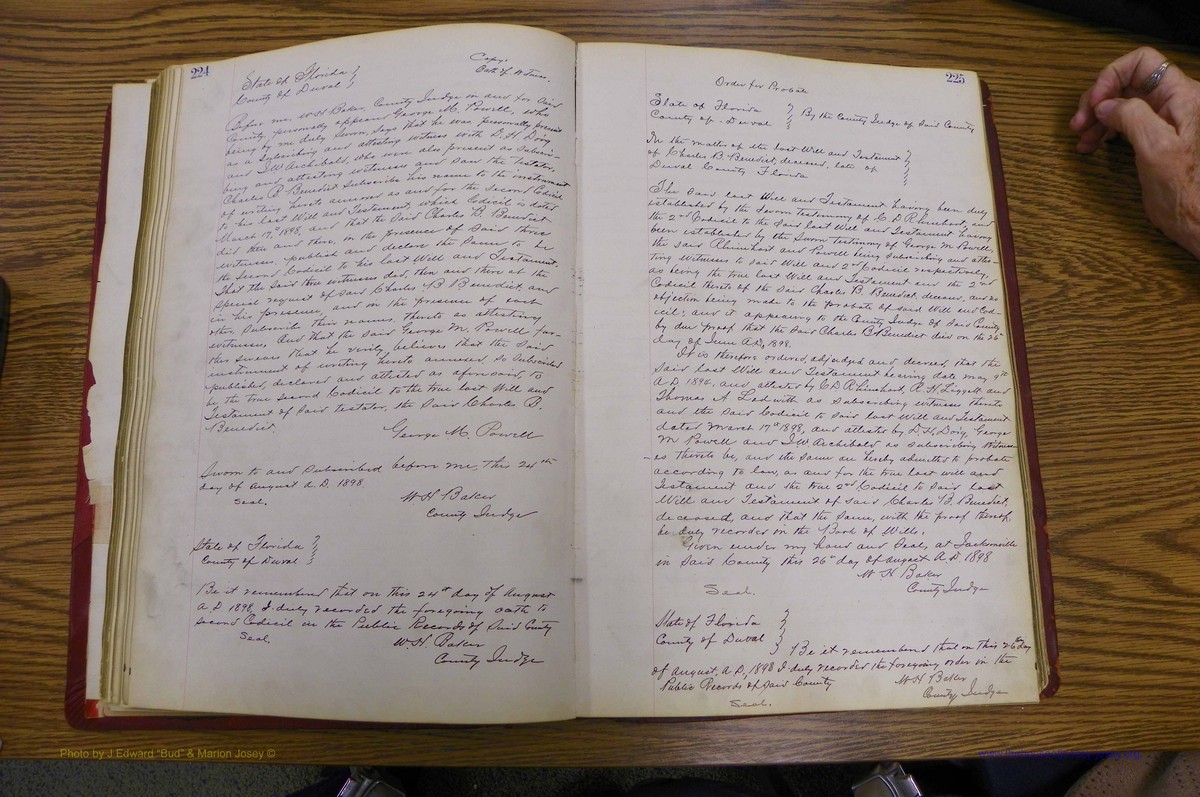 224
Copy.
Oath of Witness.
State of Florida }
County of Duval }
Before me, W H Baker, County Judge in and for said
County personally appears George M. Powell, who
being by me duly sworn, says that he was personally present
as a subscribing and attesting witness with D. H. Doig
and J W Archibald, who were also present as subscri-
bing and attesting witnesses and saw the testator,
Charles B. Benedict subscribe his name to the instrument
of writing hereto annexed as and for the second Codicil
to his last Will and Testament, which Codicil is dated
March 17th 1898, and that the said Charles B. Benedict
did then and there, in the presence of said three
witnesses, publish and declare the same to be
the second Codicil to his last Will and Testament.
That the said three witnesses did, then and there at the
special request of said Charles B Benedict, and
in his presence, and in the presence of each
other subscribe their names thereto as attesting
witnesses, and that the said George M. Powell for-
ther swears that he verily believes that the said
instrument of writing hereto annexed, so subscribed
published, declared and attested as aforesaid, to
be the true second Codicil to the true last Will and
Testament of said testator, the said Charles B.
Benedict.
George M. Powell
Sworn to and subscribed before me, this 24th
day of August A.D. 1898
Seal.
W. H Baker
County Judge
State of Florida }
County of Duval }
Be it remembered that on this 24th day of August
A.D 1898, I duly recorded the foregoing oath to
second Codicil in the Public Records of said County
Seal.
W. H. Baker
County Judge
225
Order for Probate
State of Florida }
County of Duval } By the County Judge of said County
In the matter of the last Will and Testament }
of Charles B. Benedict, deceased, late of }
Duval County Florida }
The said last Will and Testament having been duly
established by the sworn testimony of C D Rhinehart, and
the 2nd Codicil to the said last Will and Testament having
been established by the sworn testimony of George M Powell,
the said Rhinehart and Powell being subscribing and attes-
ting witnesses to said Will and 2nd Codicil respectively,
as being the true last Will and Testament and the 2nd
Codicil thereto of the said Charles B. Benedict, deceased, and no
objection being made to the probate of said Will and Cod-
icil; and it appearing to the County Judge of said County
by due proof that the said Charles B Benedict died on the 26th
day of June A.D, 1898.
It is therefore ordered, adjudged and decreed, that the
said last Will and Testament bearing date May 9th
A.D. 1896, and attested by C D Rhinehart, R. H. Liggett and
Thomas A Ledwith as subscribing witnesses thereto
and the said Codicil to said last Will and Testament
dated March 17th 1898, and attested by D. H. Doig, George
M Powell and J W Archibald as subscribing witness-
es thereto be, and the same are hereby admitted to probate
according to law, as and for the true last will and
Testament and the true 2nd Codicil to said last
Will and Testament of said Charles B. Benedict,
deceased, and that the same, with the proof thereof,
be duly recorded in the Book of Wills.
Given under my hand and seal, at Jacksonville
in said County this 26th day of August A.D. 1898
W H Baker
County Judge
Seal.
State of Florida }
County of Duval }
Be it remembered that on this 26th day
of August, A.D, 1898 I duly recorded the foregoing order in the
Public Records of said County
W H Baker
County Judge
Seal.
Photo by J Edward "Bud" & Marion Josey ©